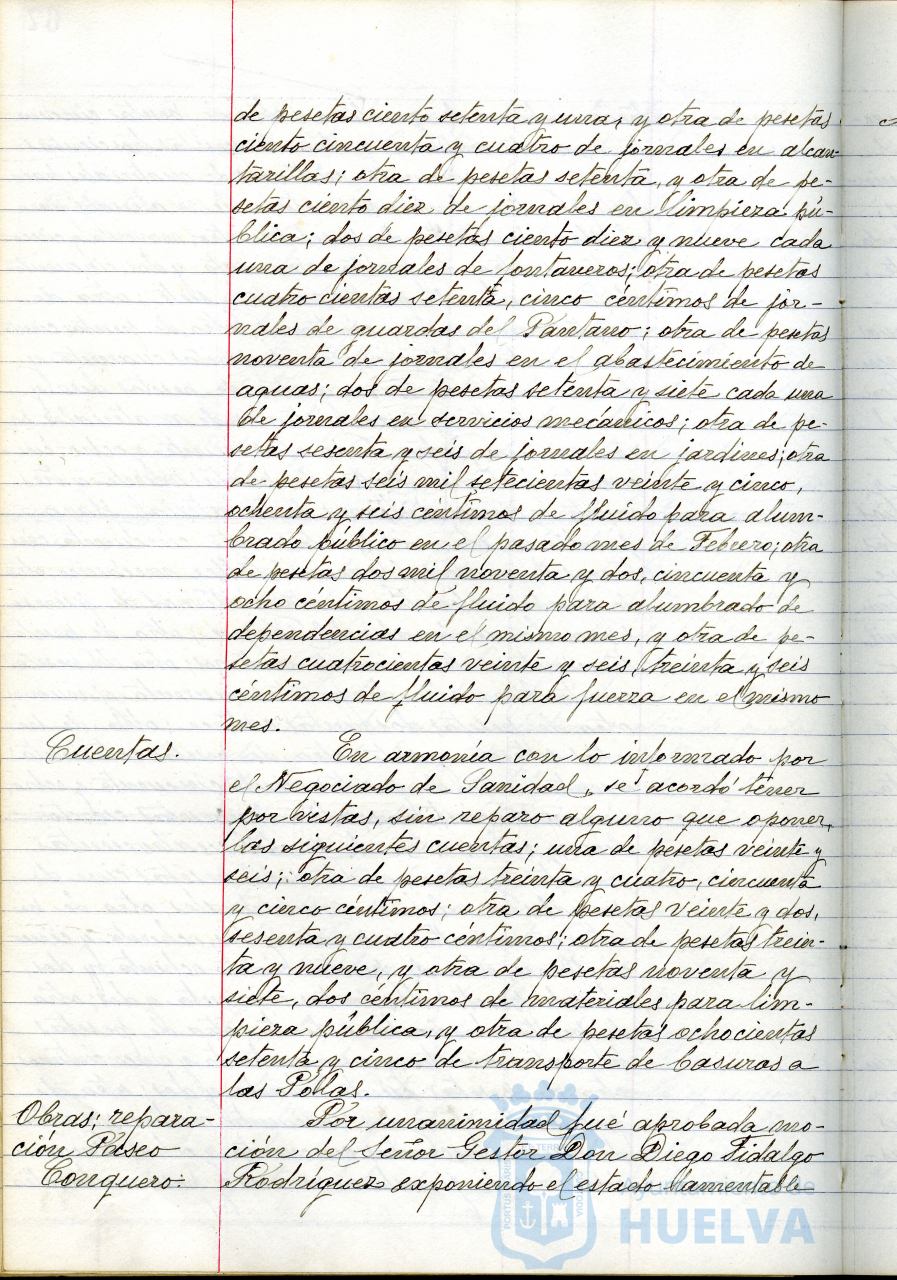 de pesetas ciento setenta y una, y otra de pesetas
ciento cincuenta y cuatro de jornales en alcan-
tarillas; otra de pesetas setenta, y otra de pe-
setas ciento diez de jornales en limpieza pú-
blica; dos de pesetas ciento diez y nueve cada
una de jornales de fontaneros; otra de pesetas
cuatrocientas setenta, cinco céntimos de jor-
nales de guardas del Pantano; otra de pesetas
noventa de jornales en el abastecimiento de
aguas; dos de pesetas setenta y siete cada una
de jornales en servicios mecánicos; otra de pe-
setas sesenta y seis de jornales en jardines; otra
de pesetas seis mil setecientas veinte y cinco,
ochenta y seis céntimos de fluido para alum-
brado público en el pasado mes de Febrero; otra
de pesetas dos mil noventa y dos, cincuenta y
ocho céntimos de fluido para alumbrado de
dependencias en el mismo mes, y otra de pe-
setas cuatrocientas veinte y seis, treinta y seis
céntimos de fluido para fuerza en el mismo
mes.
Cuentas.
En armonía con lo informado por
el Negociado de Sanidad, se acordó tener
por vistas, sin reparo alguno que oponer,
las siguientes cuentas; una de pesetas veinte y
seis; otra de pesetas treinta y cuatro, cincuenta
y cinco céntimos; otra de pesetas veinte y dos,
sesenta y cuatro céntimos; otra de pesetas trein-
ta y nueve, y otra de pesetas noventa y
siete, dos céntimos de materiales para lim-
pieza pública, y otra de pesetas ochocientas
setenta y cinco de transporte de basuras a
las Polas.
Obras; repara-
ción Paseo
Conquero.
Por unanimidad fué aprobada mo-
ción del Señor Gestor Don Diego Fidalgo
Rodríguez exponiendo el estado lamentable
Ayuntamiento de
HUELVA